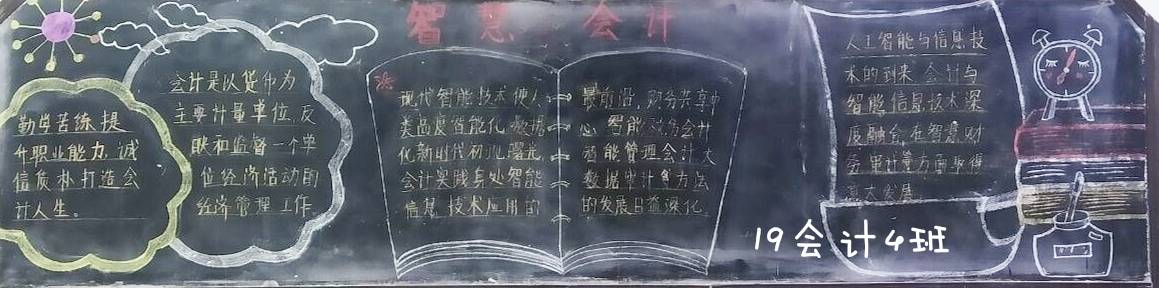 智慧 会计
勤学苦练提
升职业能力,诚
信质朴打造会
计人生。
会计是以货币为
主要计量单位,反
映和监督一个单
位经济活动的
经济管理工作
现代智能技术使人
类高度智能化,数据
化新时代初现曙光,
会计实践身处智能
信息技术应用的
最前沿,财务共享中
心、智能财务会计
智能管理会计大
数据审计等方法
的发展日益深化
人工智能与信息技
术的到来,会计与
智能信息技术深
度融合在智慧财
务 计量方面取得
19会计4班